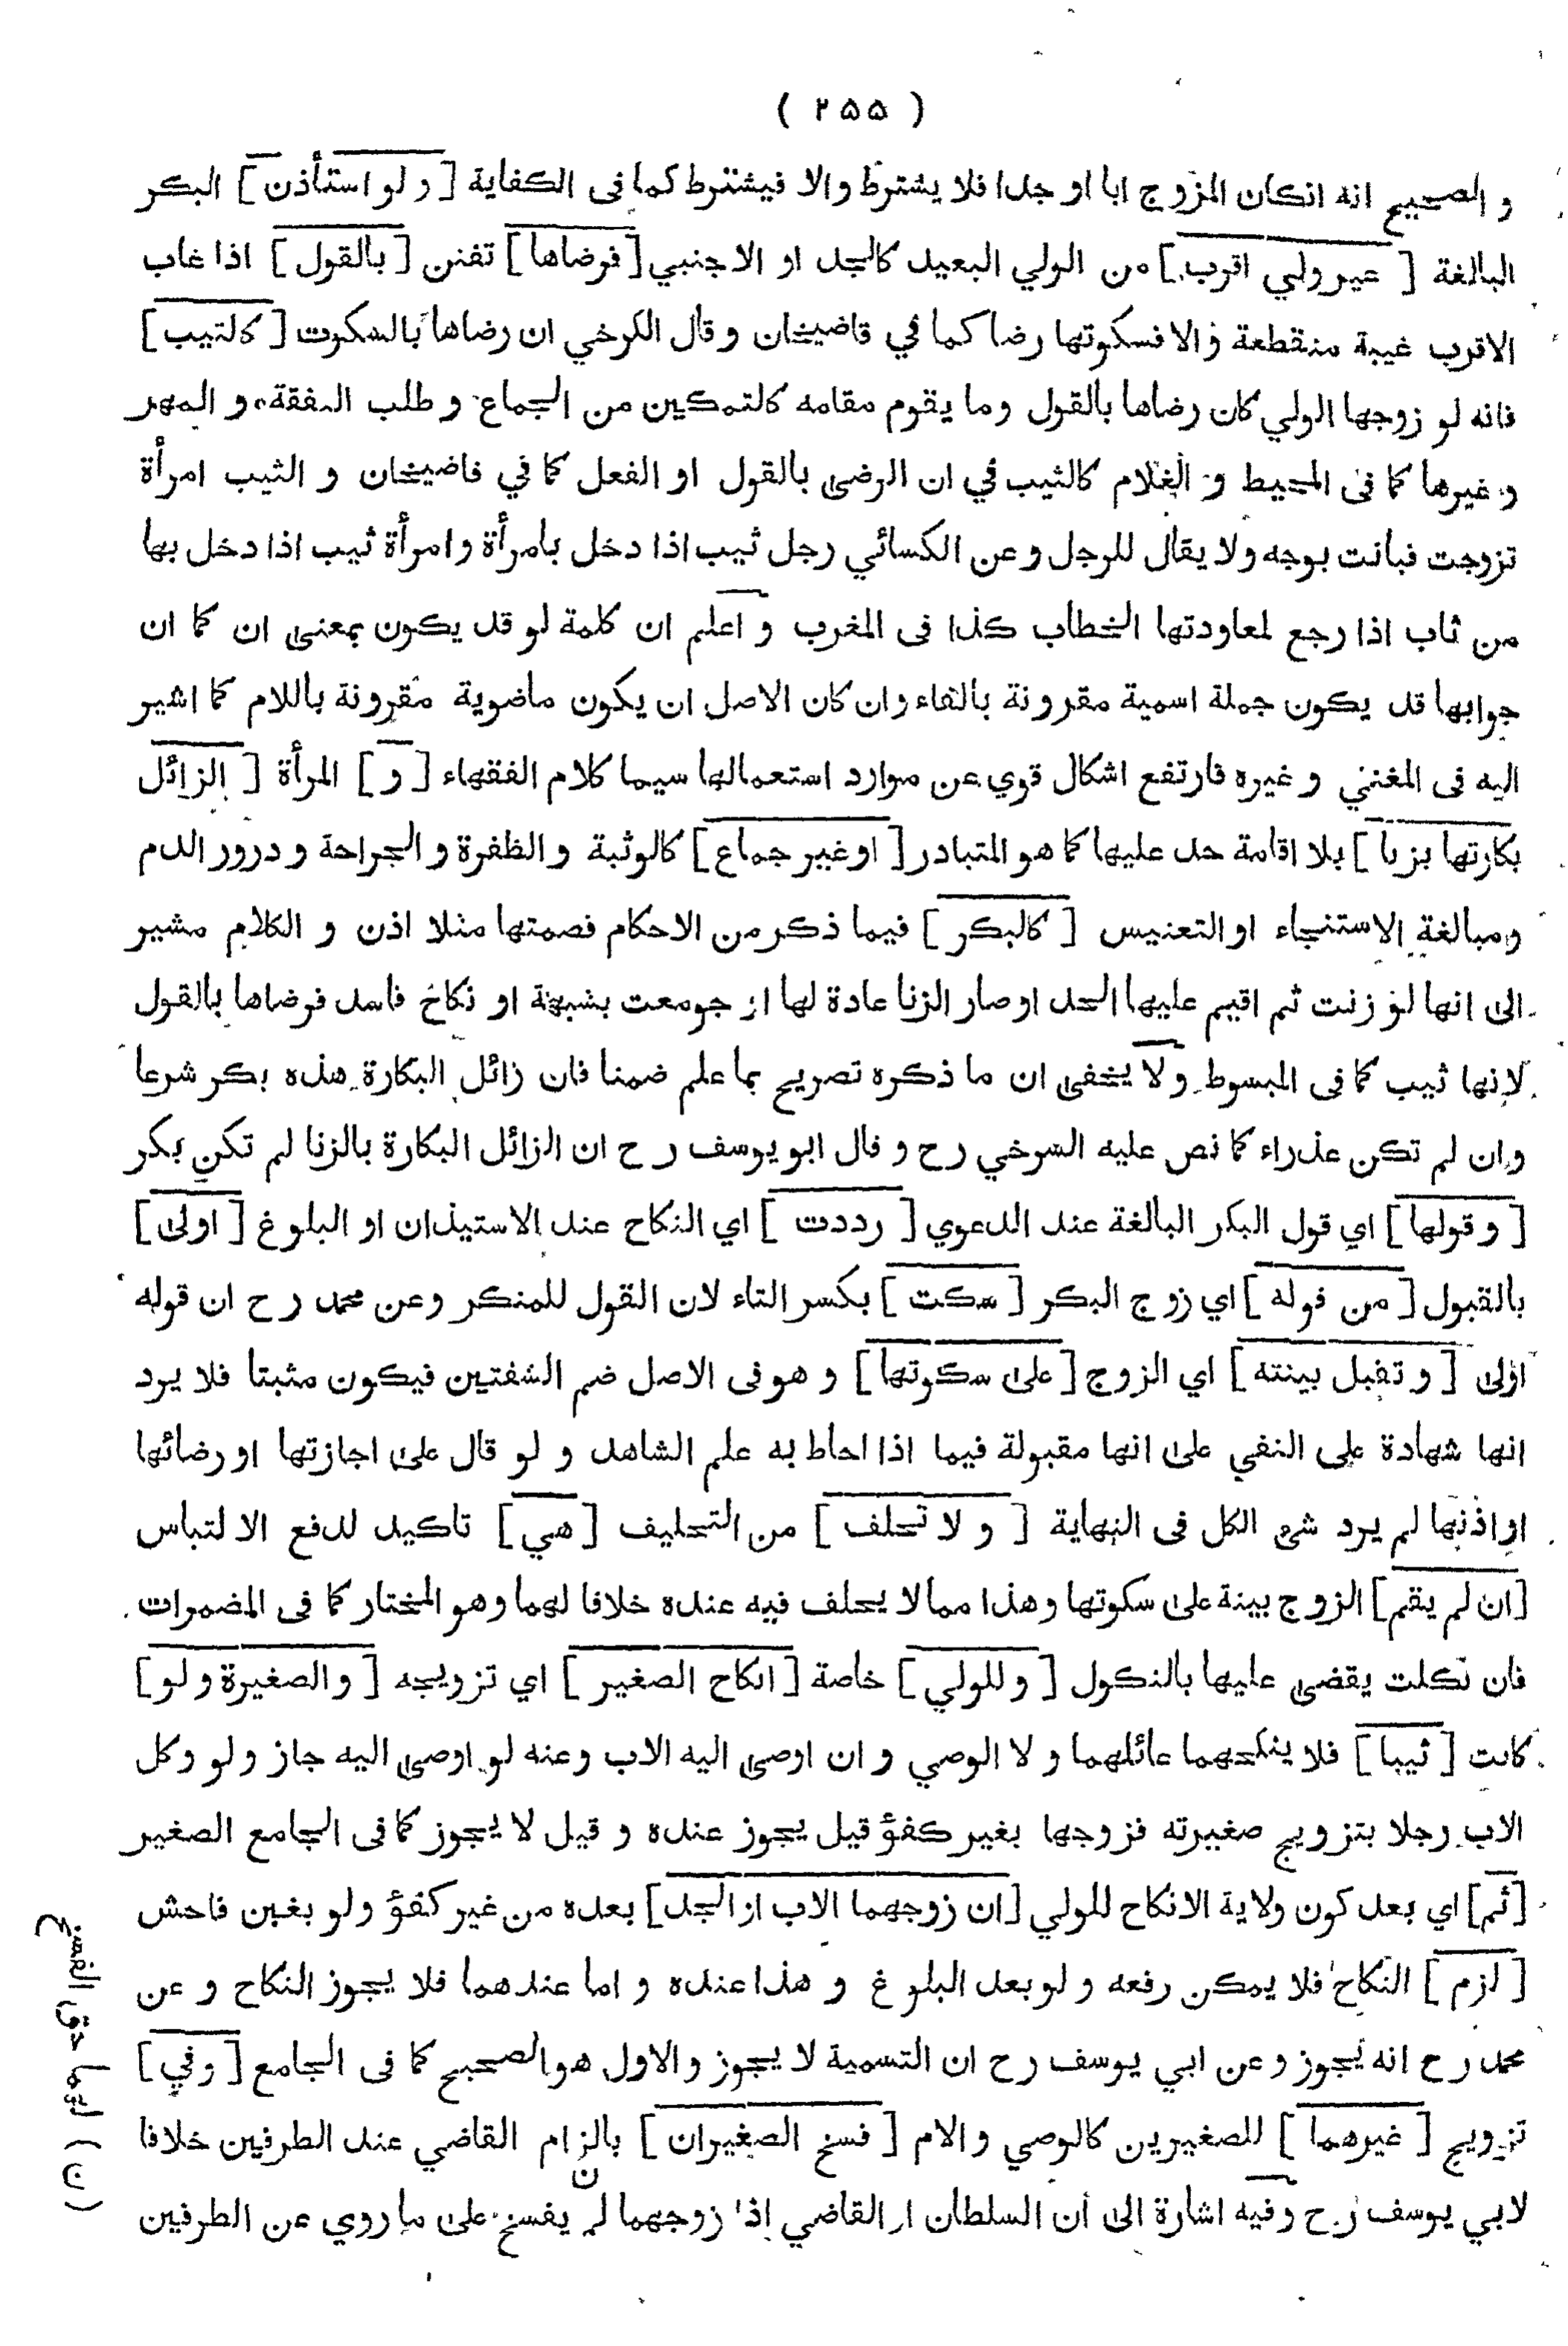 ( ٢٥٥ )
و الصحيح انه انكان المزوج ابا او جدا فلا يشترط والا فيشترط كما فى الكفاية [ و لو استأذن ] البكر
البالغة [ غير ولي اقرب ] من الولي البعيد كالجد او الاجنبي [ فرضاها ] تفنن [ بالقول ] اذا غاب
الاقرب غيبة منقطعة والا فسكوتها رضا كما في قاضيخان و قال الكرخي ان رضاها بالسكوت [ كالثيب ]
فانه لو زوجها الولي كان رضاها بالقول وما يقوم مقامه كالتمكين من الجماع و طلب النفقة و المهر
و غيرها كما فى المحيط و الغلام كالثيب في ان الرضى بالقول او الفعل كما في قاضيخان و الثيب امرأة
تزوجت فبانت بوجه ولا يقال للرجل وعن الكسائي رجل ثيب اذا دخل بامرأة وامرأة ثيب اذا دخل بها
من ثاب اذا رجع لمعاودتها الخطاب كذا فى المغرب و اعلم ان كلمة لو قد يكون بمعنى ان كما ان
جوابها قد يكون جملة اسمية مقرونة بالفاء وان كان الاصل ان يكون ماضوية مقرونة باللام كما اشير
اليه فى المغني و غيره فارتفع اشكال قوي عن موارد استعمالها سيما كلام الفقهاء [ و ] المرأة [ الزائل
بكارتها بزنا ] بلا اقامة حد عليها كما هو المتبادر [ اوغير جماع ] كالوثبة و الظفرة و الجراحة و درور الدم
ومبالغة الاستنجاء او التعنيس [ كالبكر ] فيما ذكر من الاحكام فصمتها مثلا اذن و الكلام مشير
الى انها لو زنت ثم اقيم عليها الحد او صار الزنا عادة لها او جومعت بشبهة او نكاح فاسد فرضاها بالقول
لانها ثيب كما فى المبسوط ولا يخفى ان ما ذكره تصريح بما علم ضمنا فان زائل البكارة هذه بكر شرعا
وان لم تكن عذراء كما نص عليه السرخي رح و قال ابو يوسف رح ان الزائل البكارة بالزنا لم تكن بكر
[ و قولها ] اي قول البكر البالغة عند الدعوي [ رددت ] اي النكاح عند الاستيذان او البلوغ [ اولى ]
بالقبول [ من قوله ] اي زوج البكر [ سكت ] بكسر التاء لان القول للمنكر وعن محمد رح ان قوله
اولى [ و تقبل بينته ] اي الزوج [ على سكوتها ] و هو فى الاصل ضم الشفتين فيكون مثبتا فلا يرد
انها شهادة على النفي على انها مقبولة فيما اذا احاط به علم الشاهد و لو قال على اجازتها او رضائها
او اذنها لم يرد شئ الكل فى النهاية [ و لا تحلف ] من التحليف [ هي ] تاكيد لدفع الالتباس
[ ان لم يقم ] الزوج بينة على سكوتها وهذا مما لا يحلف فيه عنده خلافا لهما وهو المختار كما فى المضمرات
فان نكلت يقضى عليها بالنكول [ و للولي ] خاصة [ انكاح الصغير ] اي تزويجه [ و الصغيرة ولو ]
كانت [ ثيبا ] فلا ينكحهما عائلهما و لا الوصي و ان اوصى اليه الاب وعنه لو اوصى اليه جاز ولو وكل
الاب رجلا بتزويج صغيرته فزوجها بغير كفؤ قيل يجوز عنده و قيل لا يجوز كما فى الجامع الصغير
[ ثم ] اي بعد كون ولاية الانكاح للولي [ ان زوجهما الاب او الجد ] بعده من غير كفؤ ولو بغبن فاحش
[ لزم ] النكاح فلا يمكن رفعه و لو بعد البلوغ و هذا عنده و اما عندهما فلا يجوز النكاح و عن
محمد رح انه يجوز وعن ابي يوسف رح ان التسمية لا يجوز والاول هو الصحيح كما فى الجامع [ وفي ]
تزويج [ غيرهما ] للصغيرين كالوصي والام [ فسخ الصغيران ] بالزام القاضي عند الطرفين خلافا
لابي يوسف رح وفيه اشارة الى أن السلطان او القاضي اذا زوجهما لم يفسخ على ما روي عن الطرفين
( ن ) لهما حق الفسخ